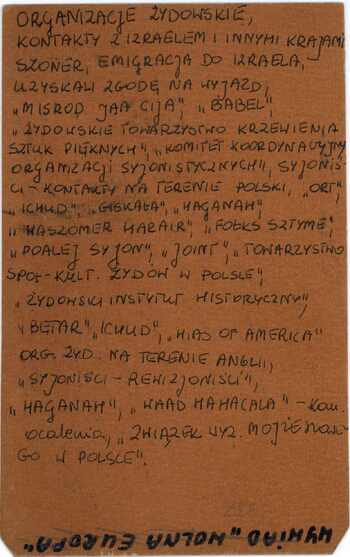 ORGANIZACJE ŻYDOWSKIE,
KONTAKTY Z IZRAELEM I INNYMI KRAJAMI
SZONER, EMIGRACJA DO IZRAELA,
UZYSKALI ZGODĘ NA WYJAZD,
„MISROD JAA CIJA", „BABEL",
„ŻYDOWSKIE TOWARZYSTWO KRZEWIENIA
SZTUK PIĘKNYCH", „KOMITET KOORDYNACYJNY
ORGANIZACJI SYJONISTYCZNYCH", SYJONIŚ-
CI - KONTAKTY NA TERENIE POLSKI, „ORT",
„ICHUD", „GISKAŁA", „HAGANAH",
„HASZOMER HACAIR", „FOŁKS SZTYME",
„POALEJ SYJON", „JOINT", „TOWARZYSTWO
SPOŁ-KULT. ŻYDÓW W POLSCE",
„ŻYDOWSKI INSTYTUT HISTORYCZNY",
„BETAR", „ICHUD", „HIAS OF AMERICA"
ORG. ŻYD. NA TERENIE ANGLII,
„SYJONIŚCI - REWIZJONIŚCI",
„HAGANAH", „WAAD HAHACALA" - Kom.
ocalenia, „ZWIĄZEK WYZ. MOJŻESZOWE-
GO W POLSCE".
WYWIAD „WOLNA EUROPA"